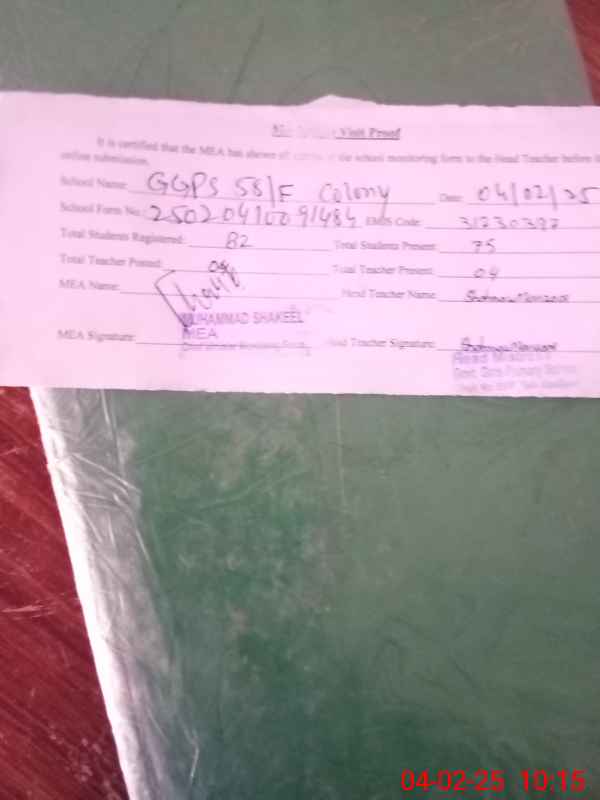 Visit Proof
It is certified that the MEA has shown all the school monitoring form to the Head Teacher before
online submission.
School Name: GGPS 58/F Colony Date: 04/02/25
School Form No: 25020410091484 EMIS Code: 31230397
Total Students Registered: 82 Total Students Present: 75
Total Teacher Posted: 04 Total Teacher Present: 04
MEA Name: Head Teacher Name:
MUHAMMAD SHAKEEL
MEA
MEA Signature: Head Teacher Signature:
Head Mistress
04-02-25 10:15